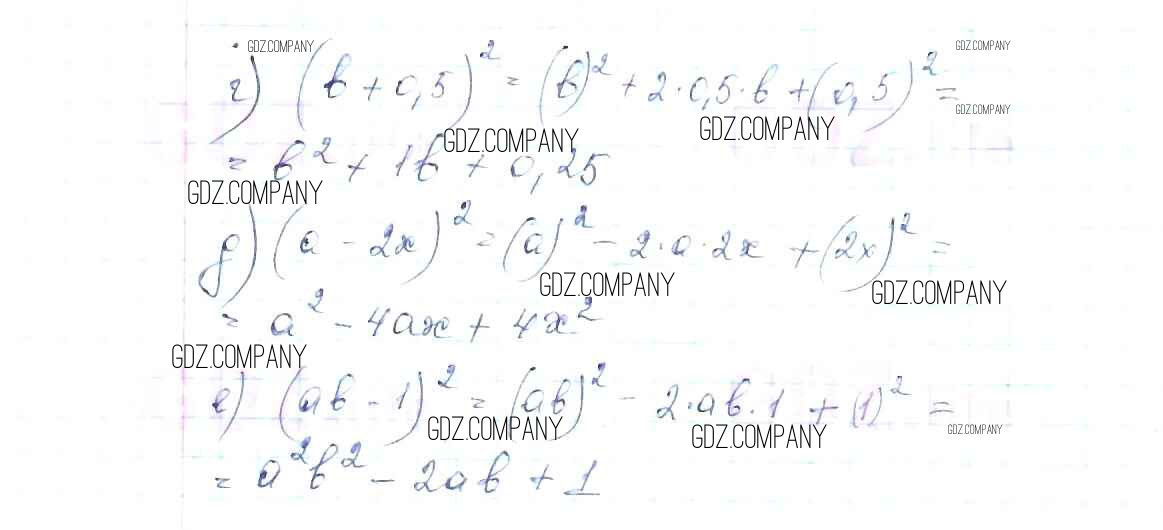 GDZ.COMPANY GDZ.COMPANY
г) (b + 0,5)² = (b)² + 2·0,5·b + (0,5)² =
GDZ.COMPANY
GDZ.COMPANY GDZ.COMPANY
= b² + 1b + 0,25
GDZ.COMPANY
д) (a - 2x)² = (a)² - 2·a·2x + (2x)² =
GDZ.COMPANY GDZ.COMPANY
= a² - 4ax + 4x²
GDZ.COMPANY
е) (ab - 1)² = (ab)² - 2·ab·1 + (1)² =
GDZ.COMPANY GDZ.COMPANY GDZ.COMPANY
= a²b² - 2ab + 1